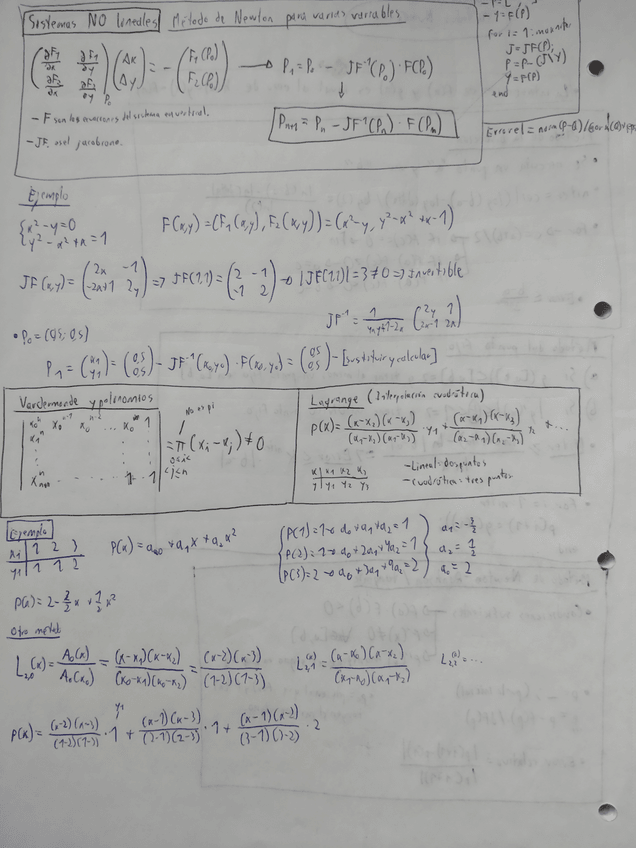 Sistemas NO lineales Método de Newton para varias variables
(∂F1/∂x ∂F1/∂y; ∂F2/∂x ∂F2/∂y)P0 (Δx; Δy) = -(F1(P0); F2(P0)) → P1 = P0 - JF⁻¹(P0)·F(P0)
↓
Pn+1 = Pn - JF⁻¹(Pn)·F(Pn)
- F son las ecuaciones del sistema en vertical.
- JF es el jacobiano.
- Y=F(P)
for i=1:maxnite
J=JF(P);
P=P-(J\Y)
Y=F(P)
end
Ejemplo
{x²-y=0
{y²-x²+x=1
F(x,y)=(F1(x,y), F2(x,y))=(x²-y, y²-x²+x-1)
JF(x,y)=(2x -1; -2x+1 2y) => JF(1,1)=(2 -1; -1 2) → |JF(1,1)|=3≠0 => invertible
JF⁻¹ = 1/(4xy+1-2x) (2y 1; 2x-1 2x)
• P0=(0,5; 0,5)
P1=(x1; y1)=(0,5; 0,5) - JF⁻¹(x0,y0)·F(x0,y0)=(0,5; 0,5)-[sustituir y calcular]
Vandermonde y polinomios
|x0ⁿ x0ⁿ⁻¹ x0ⁿ⁻² ... x0 1; x1ⁿ ... 1| = π(xi-xj)≠0
No es pi
Lagrange (Interpolación cuadrática)
P(x)=(x-x2)(x-x3)/(x1-x2)(x1-x3)·y1+(x-x1)(x-x3)/(x2-x1)(x2-x3) y2+...
x| x1 x2 x3
y| y1 y2 y3
- Lineal=dos puntos
- Cuadrática=tres puntos
Ejemplo
xi|1|2|3
yi|1|1|2
P(x)=a0+a1x+a2x²
{P(1)=1→a0+a1+a2=1
{P(2)=1→a0+2a1+4a2=1
{P(3)=2→a0+3a1+9a2=2
a1=-3/2
a2=1/2
a0=2
P(x)=2-3/2x+1/2x²
Otro método
L2,0(x)=A0(x)/A0(x0)=(x-x1)(x-x2)/(x0-x1)(x0-x2)=(x-2)(x-3)/(1-2)(1-3) L2,1(x)=(x-x0)(x-x2)/(x1-x0)(x1-x2) L2,2(x)=...
y1
P(x)=(x-2)(x-3)/(1-2)(1-3)·1+(x-1)(x-3)/(2-1)(2-3)·1+(x-1)(x-2)/(3-1)(3-2)·2